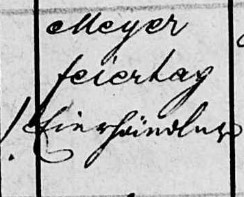 Meyer
feiertag
Eierhändler